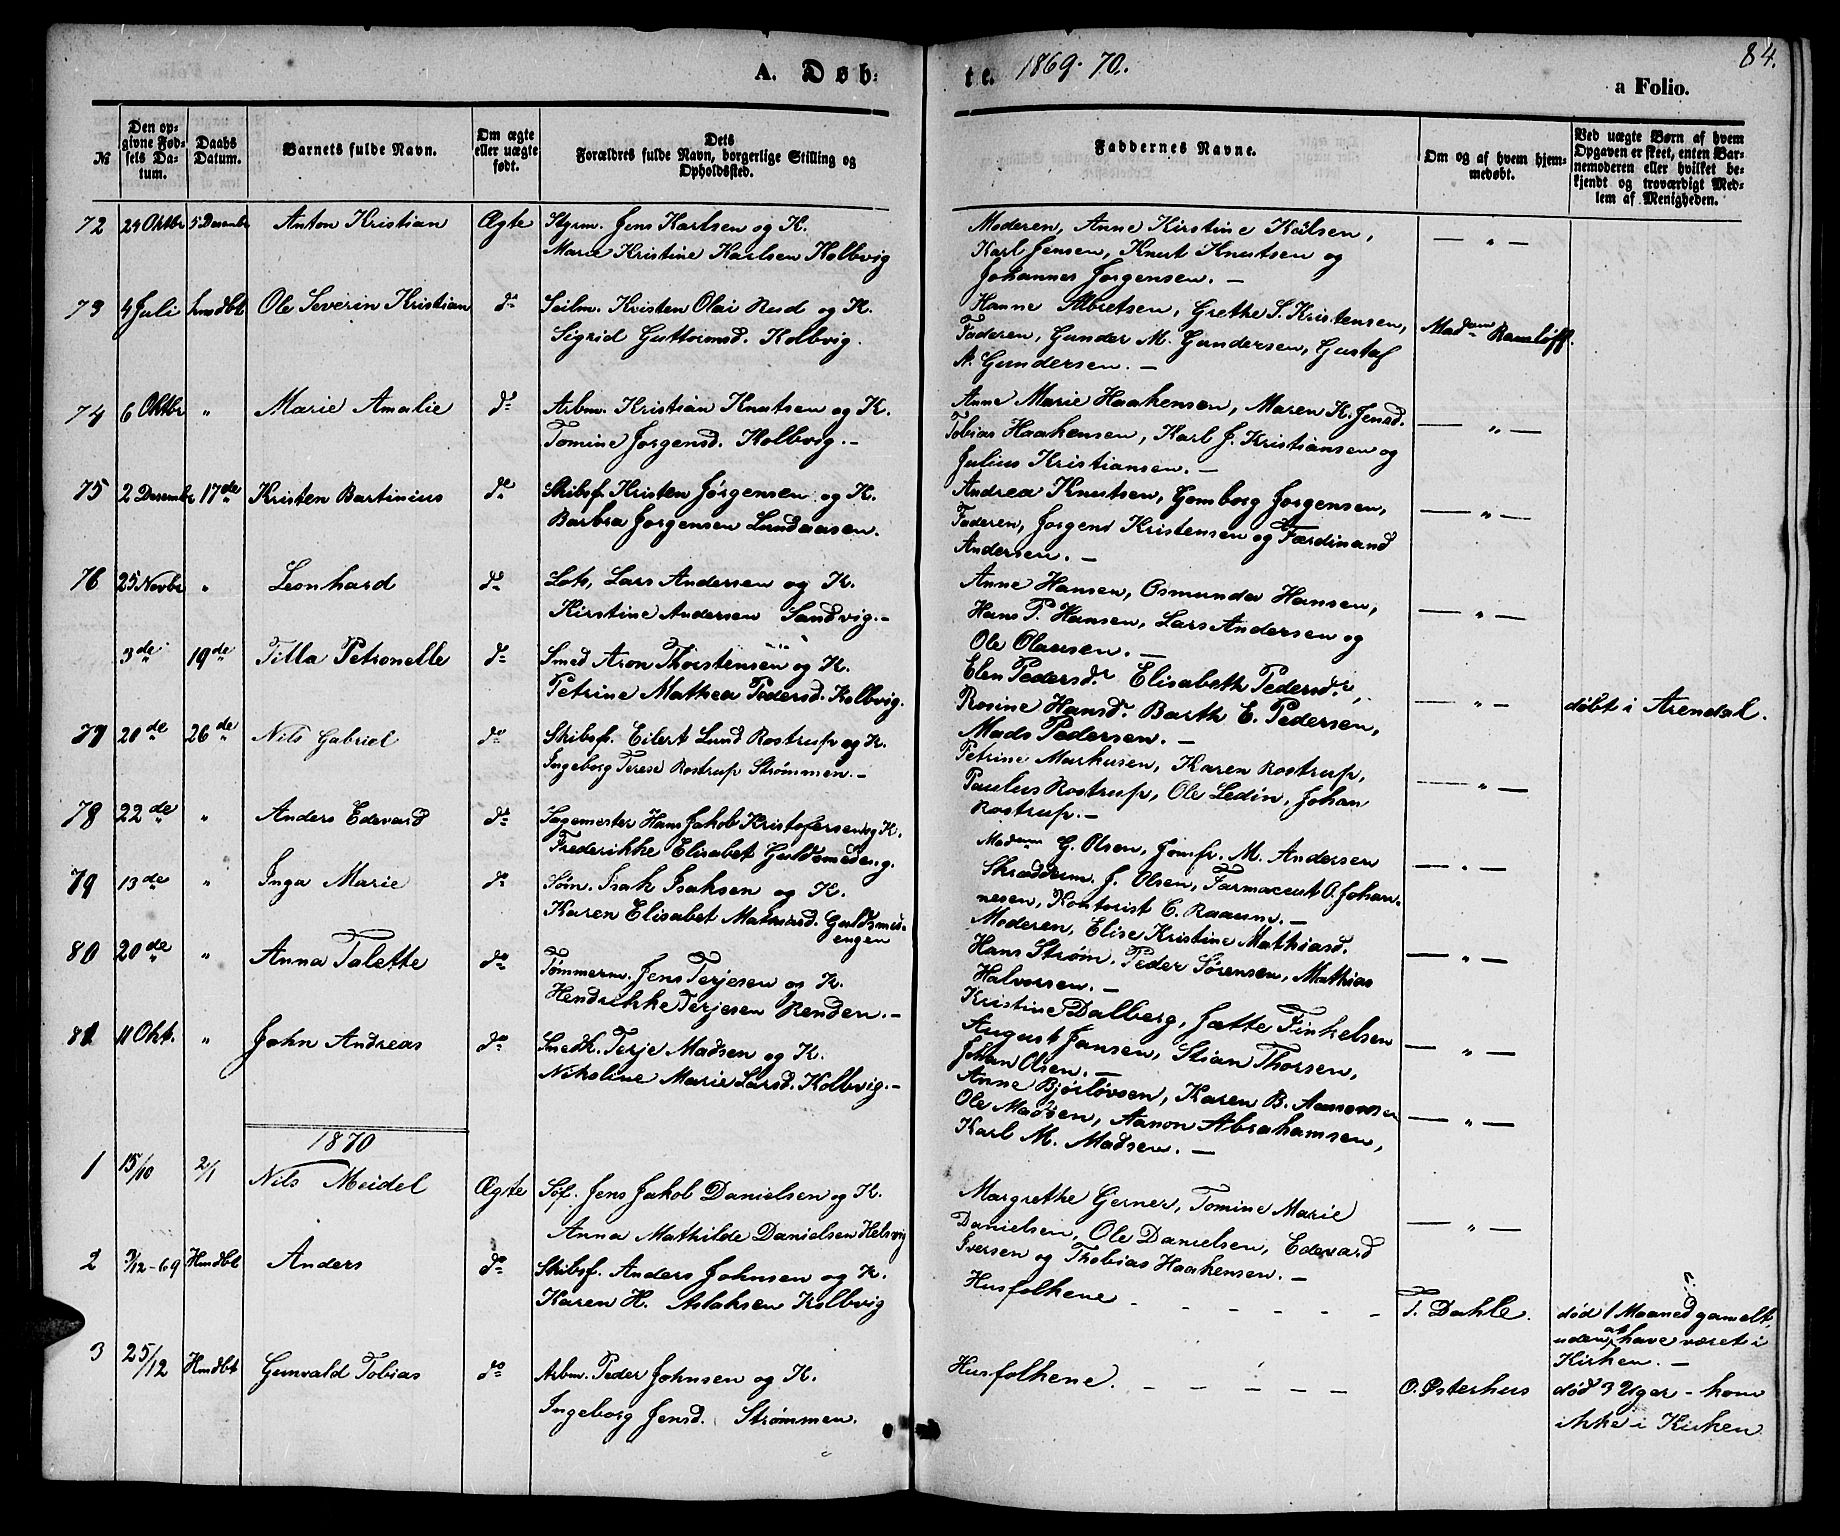 A. Døb=
te. 1869-70.
84.
a Folio.
№
Den op-
givne Fød-
sels Da-
tum.
Daabs
Datum.
Barnets fulde Navn.
Om ægte
eller uægte
født.
Dets
Forældres fulde Navn, borgerlige Stilling og
Opholdssted.
Faddernes Navne.
Om og af hvem hjem-
medøbt.
Ved uægte Børn af hvem
Opgaven er skeet, enten Bar-
nemoderen eller hvilket be-
kjendt og troværdigt Med-
lem af Menigheden.
72 24 Oktbr 5 Desember Anton Kristian Ægte Styrm. Jens Karlsen og K.
Marie Kristine Karlsen Kolbvig
Moderen, Anne Kirstine Kalsen,
Karl Jensen, Knut Knutsen og
Johannes Jorgensen. —
— " —
73 4 Juli hmdbt Ole Severin Kristian do Seilm. Kristen Olai Rud og K.
Sigrid Guttormsd. Kolbvig.
Hanne Albretsen, Grethe S. Kristensen,
Faderen, Gunder M. Gundersen, Gustaf
A. Gundersen. —
Madam Ramløff.
74 6 Oktbr " Marie Amalie do Arbm. Kristian Knutsen og K.
Tomine Jorgensd. Kolbvig. —
Anne Marie Haakensen, Maren K. Jensd.
Tobias Haakensen, Karl J. Kristiansen og
Julius Kristiansen. —
— " —
75 2 Desember 17de Kristen Bartinius do Skibsf. Kristen Jørgensen og K.
Barbra Jorgensen Lundaasen.
Andrea Knutsen, Gomborg Jorgensen,
Faderen, Jorgend Kristensen og Færdinand
Andersen. —
— " —
76 25 Novbr " Leonhard do Lots, Lars Andersen og K.
Kirstine Andersen Sandvig. —
Anne Hansen, Osmunda Hansen,
Hans P. Hansen, Lars Andersen og
Ole Olausen. —
— " —
3de 19de Tilla Petronelle do Smed Aron Thorstensen og K.
Petrine Mathea Pedersd. Kolbvig.
Elen Pedersdr Elisabeth Pedersdr,
Rosine Hansdr Barth E. Pedersen,
Mads Pedersen. —
— " —
døbt i Arendal.
77 20de 26de Nils Gabriel do Skibsf. Eilert Lund Rostrup og K.
Ingeborg Terese Rostrup Strømmen. —
Petrine Markusen, Karen Rostrup,
Paulus Rostrup, Ole Ledin, Johan
Rostrup. —
— " —
78 22de " Anders Edevard do Sagemester Hans Jakob Kristofersen og K.
Frederikke Elisabet Guldsmedeng.
Madam G. Olsen, Jomfr. M. Andersen
Skrædderm. J. Olsen, Farmaceut O. Johan-
nesen, Kontorist C. Raaum. —
— " —
79 13de " Inga Marie do Søm. Isak Isaksen og K.
Karen Elisabet Mathiasd. Guldsmed-
engen
Moderen, Elise Kristine Mathiasd.
Hans Strøm. Peder Sørensen, Mathias
Halvorsen. —
— " —
80 20de " Anna Talette do Tømmerm. Jens Terjesen og K.
Hendrikke Terjesen Renden. —
Kristine Dalberg, Jætte Finkelsen
August Jansen, Stian Thorsen,
Johan Olsen. —
— " —
81 11 Okt. " John Andreas do Smedk. Terje Madsen og K.
Nikoline Marie Larsd. Kolbvig. —
Anne Bjorlovsen, Karen B. Aanonsen
Ole Madsen, Aanon Abrahamsen,
Karl M. Madsen. —
— " —
1870
1 15/10 2/1 Nils Meidel Ægte Søf. Jens Jakob Danielsen og K.
Anna Mathilde Danielsen Helsvig
Margrethe Gerner, Tomine Marie
Danielsen, Ole Danielsen, Edevard
Iversen og Thobias Haakensen. —
— " —
2 3/12-69 Hmdbt Anders do Skibsf. Anders Johnsen og K.
Karen H. Aslaksen Kolbvig
Husfolkene - - - - - -
T. Dahle.
død 1 Maaned gamelt,
uden at have været i
Kirken. —
3 25/12 Hmdbt Gunvald Tobias do Arbm. Peder Johnsen og K.
Ingeborg Jensd. Strømmen.
Husfolkene. - - - - - -
O. Østerhus
død 3 Uger - kom
ikke i Kirken